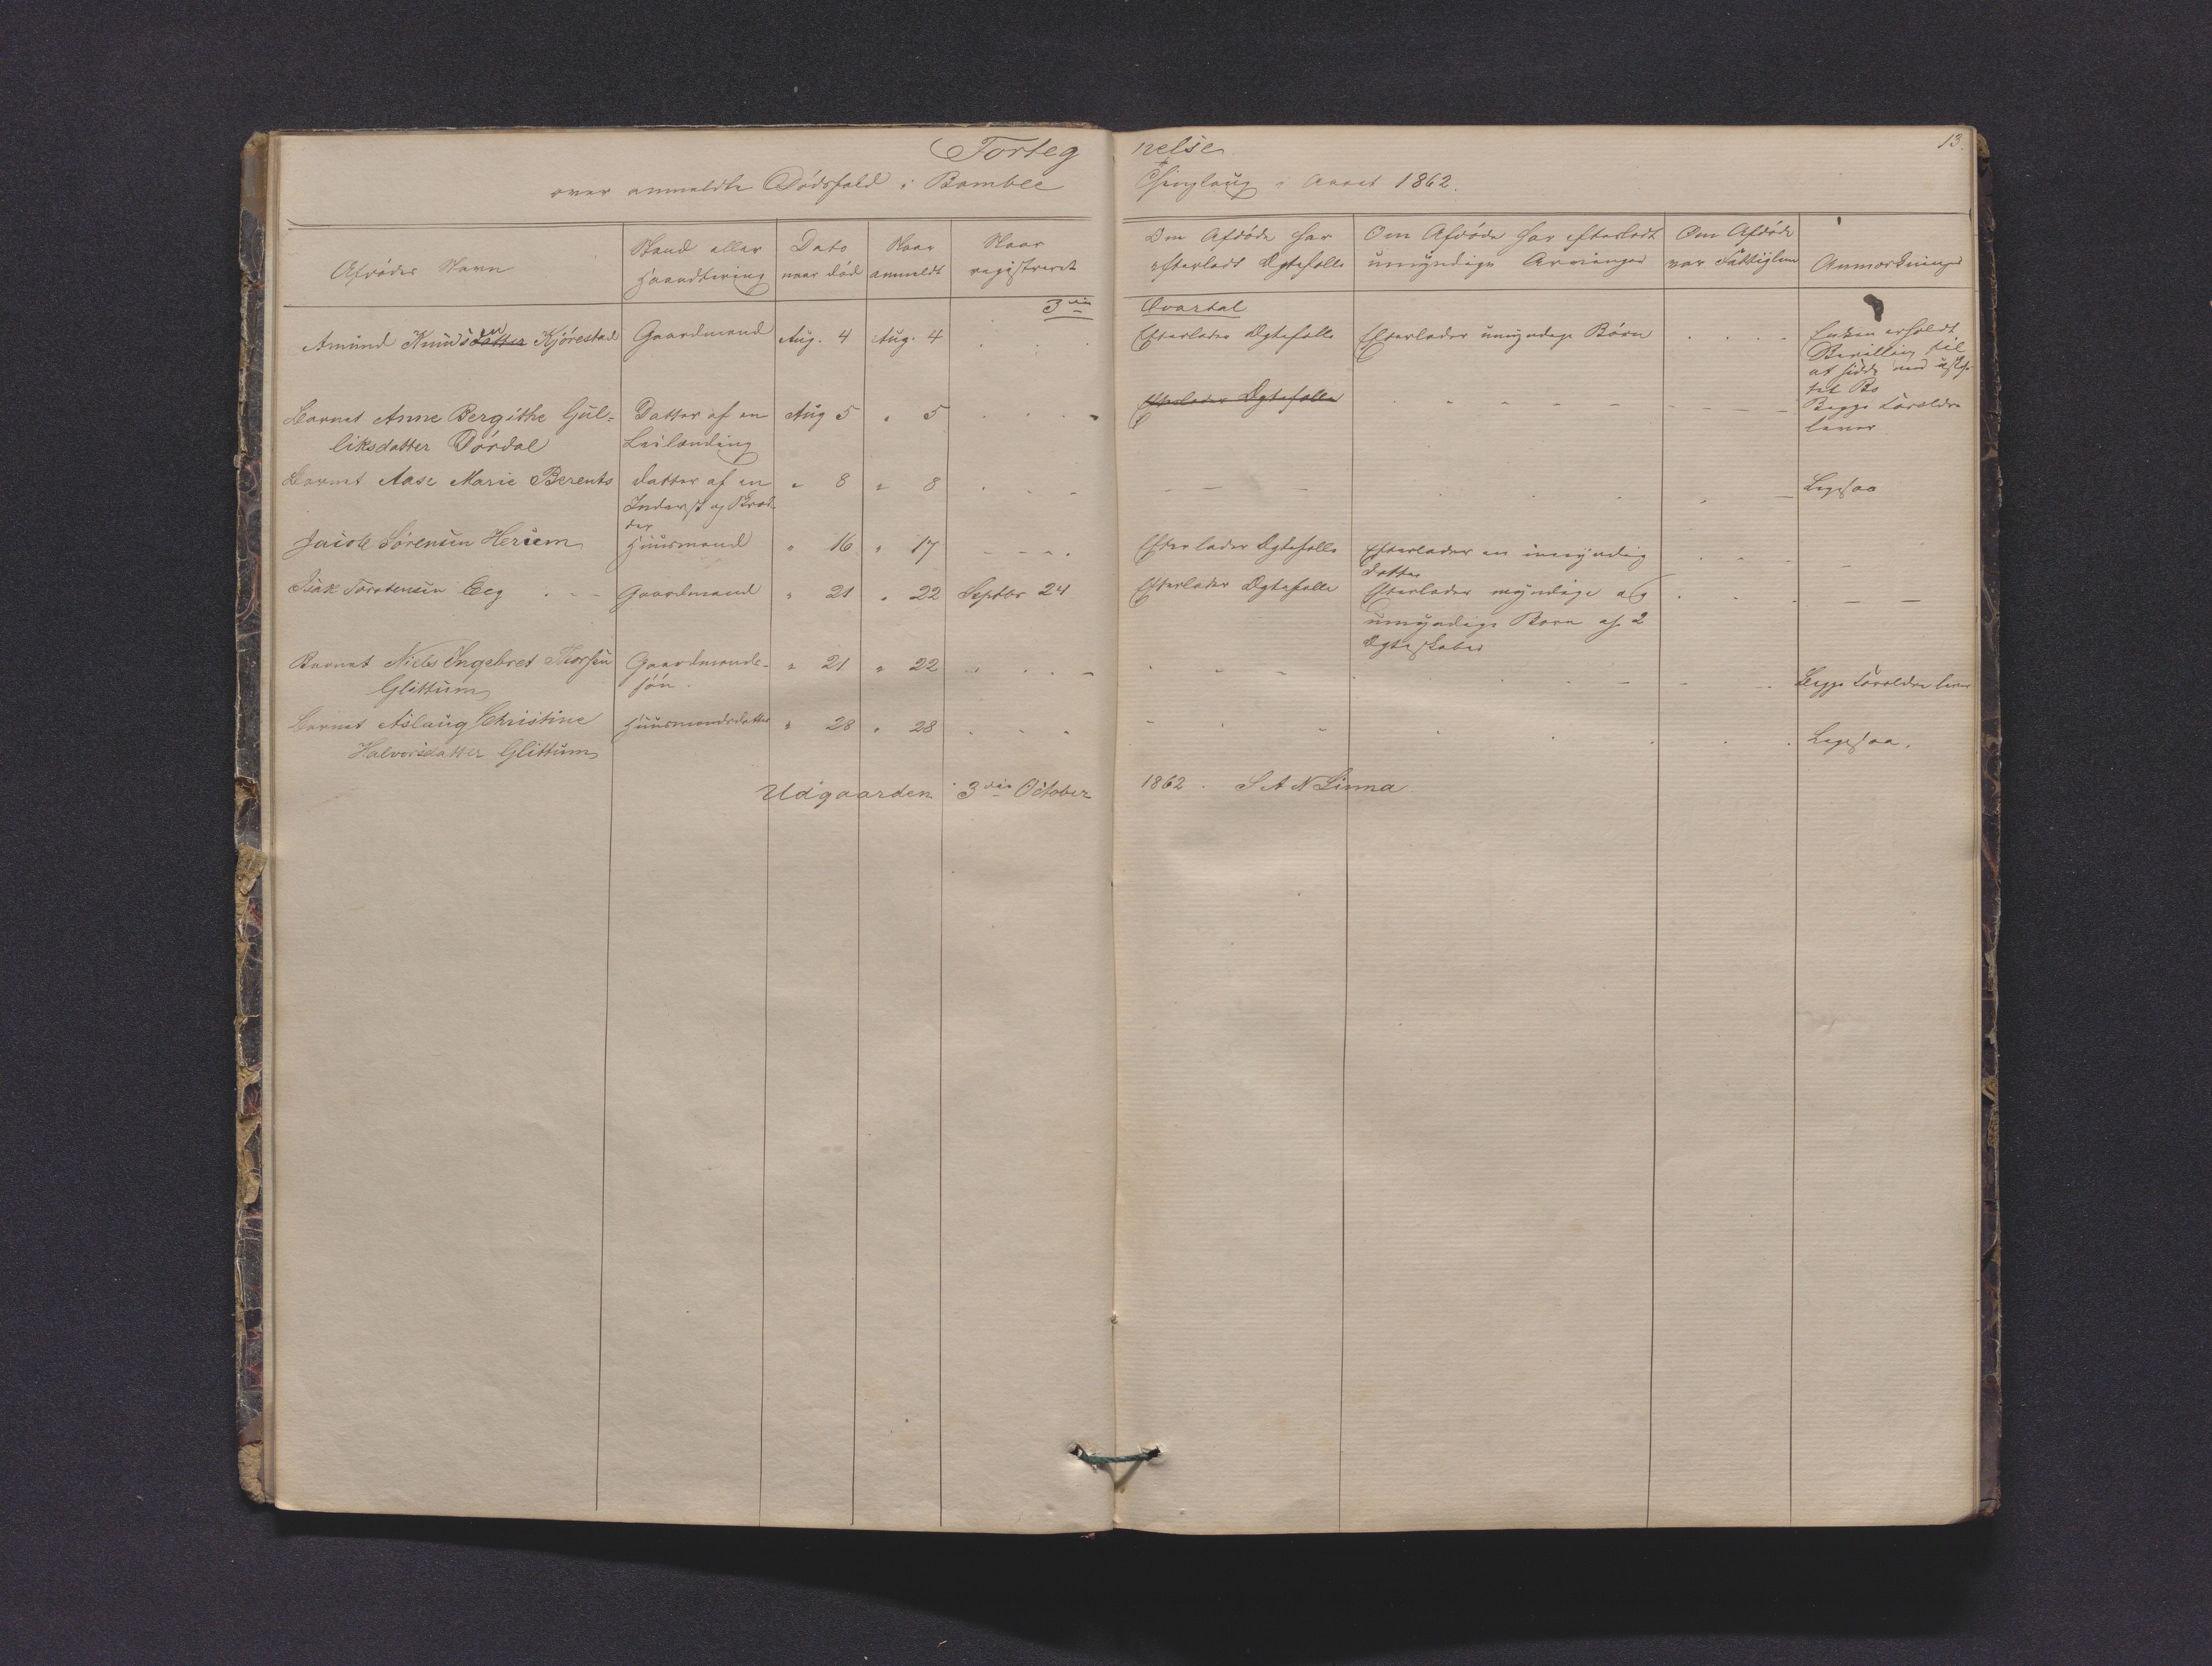 13.
Forteg nelse
over anmeldte Dödsfald i Bamble Thinglaug i Aaret 1862.
Afdödes Navn
Stand eller Haandtering
Dato naar död
Naar anmeldt
Naar registreret
Om Afdöde har efterladt Ægtefælle
Om Afdöde har efterladt umyndige Arvinger
Om Afdöde var Fattiglem
Anmærkninger
3die Qvartal
Amund Knudsen Kjörestad Gaardmand Aug. 4 Aug. 4 Efterlader Ægtefælle Efterlader umyndige Börn Enken erholdt
Bevilling til
at sidde i uskif-
tet Bo
Barnet Anne Bergithe Gul= Datter af en Aug 5 " 5 Efterlader Ægtefælle Begge Foreldre
liksdatter Dördal Leilænding lever
Barnet Aase Marie Berents datter af en " 8 " 8 Ligesaa
Inderst og
Jacob Sörensen Herum Huusmand " 16 " 17 Efterlader Ægtefælle Efterlader en umyndig
Datter
Isak Torstensen Eeg Gaardmand " 21 " 22 Septbr 24 Efterlader Ægtefælle Efterlader myndige og
umyndige Born af 2
Ægteskaber
Barnet Niels Ingebret Thorsen Gaardmands- " 21 " 22 Begge Foreldre lever
Glittum sön.
Barnet Aslaug Christine Huusmandsdatter " 28 " 28 Ligesaa.
Halvorsdatter Glittum
Udgaarden 3die October 1862. S A N Linna